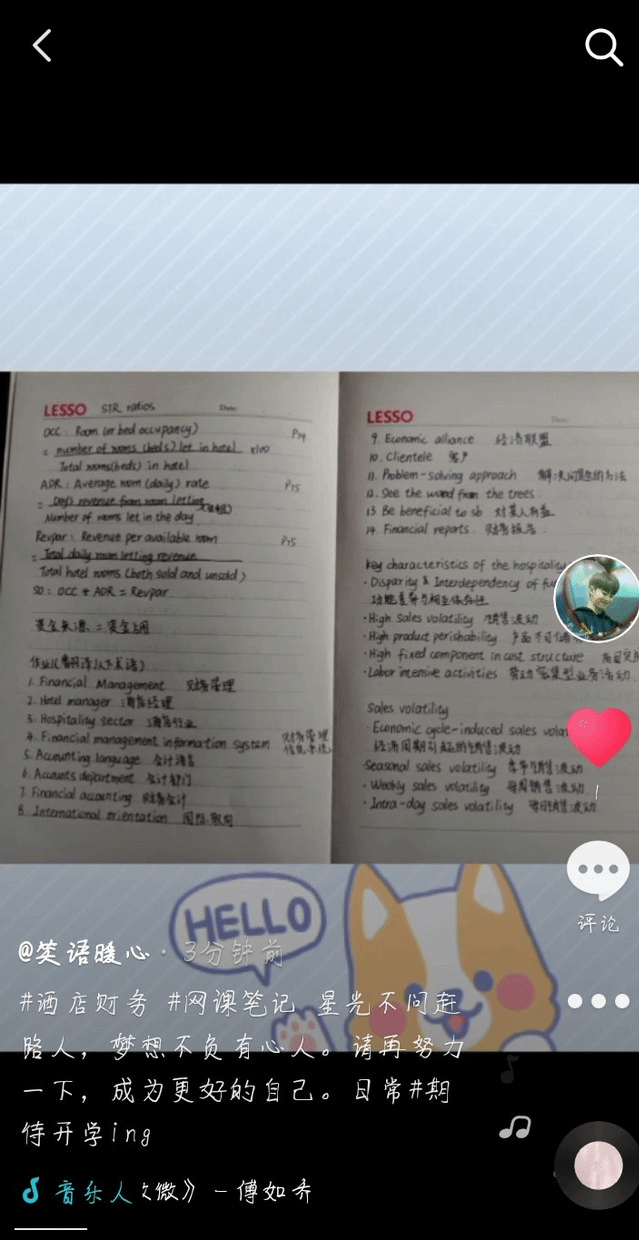 LESSO STR ratios Date:
OCC: Room (or bed occupancy) P74
= number of rooms (beds) let in hotel x100
Total rooms(beds) in hotel
ADR: Average room (daily) rate P75
= Day's revenue from room letting
Number of rooms let in the day
Revpar: Revenue per available room P75
= Total daily room letting revenue
Total hotel rooms (both sold and unsold)
SO: OCC * ADR = Revpar
资金来源 = 资金占用
作业(翻译以下术语)
1. Financial Management 财务管理
2. Hotel manager 酒店经理
3. Hospitality sector 酒店行业
4. Financial management information system 财务管理信息系统
5. Accounting language 会计语言
6. Accounts department 会计部门
7. Financial accounting 财务会计
8. International orientation 国际取向
LESSO Date:
9. Economic alliance 经济联盟
10. Clientele 客户
11. Problem-solving approach 解决问题的方法
12. See the wood from the trees
13 Be beneficial to sb 对某人有益
14. Financial reports 财务报告
key characteristics of the hospitality
· Disparity & Interdependency of
功能差异与相互依存性
· High sales volatility 销售波动
· High product perishability 产品不可储
· High fixed component in cost structure 高固定
· Labor intensive activities 劳动密集型业务活动
Sales volatility
· Economic cycle-induced sales
经济周期引起的销售波动
·Seasonal sales volatility 季节销售波动
· Weekly sales volatility 每周销售波动
· Intra-day sales volatility 每日销售波动
1
评论
HELLO
@笑语暖心 · 3分钟前
#酒店财务 #网课笔记 星光不问赶
路人，梦想不负有心人。请再努力
一下，成为更好的自己。日常#期
待开学ing
音乐人 微》 - 傅如乔